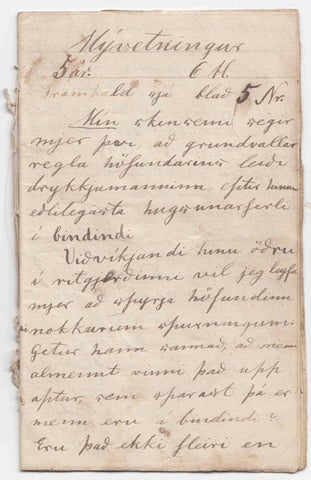 Mývetningur
5 ár. 6 bl.
Framhald sjá blað 5 Nr.
Mín skinsemi segir
mjer því, að grundvallar
regla höfundarins leiði
drykkjumanninn eftir hinum
eðlilegasta hugsunarferli
í bindindi
Viðvíkjandi hinu öðru
í ritgjörðinni vil jeg leyfa
mjer að spyrja höfundinn
nokkurum spurningum.
Getur hann sannað, að menn
almennt vinni það upp
aptur, sem sparast þá er
menn eru í bindindi?
Eru það ekki fleiri en